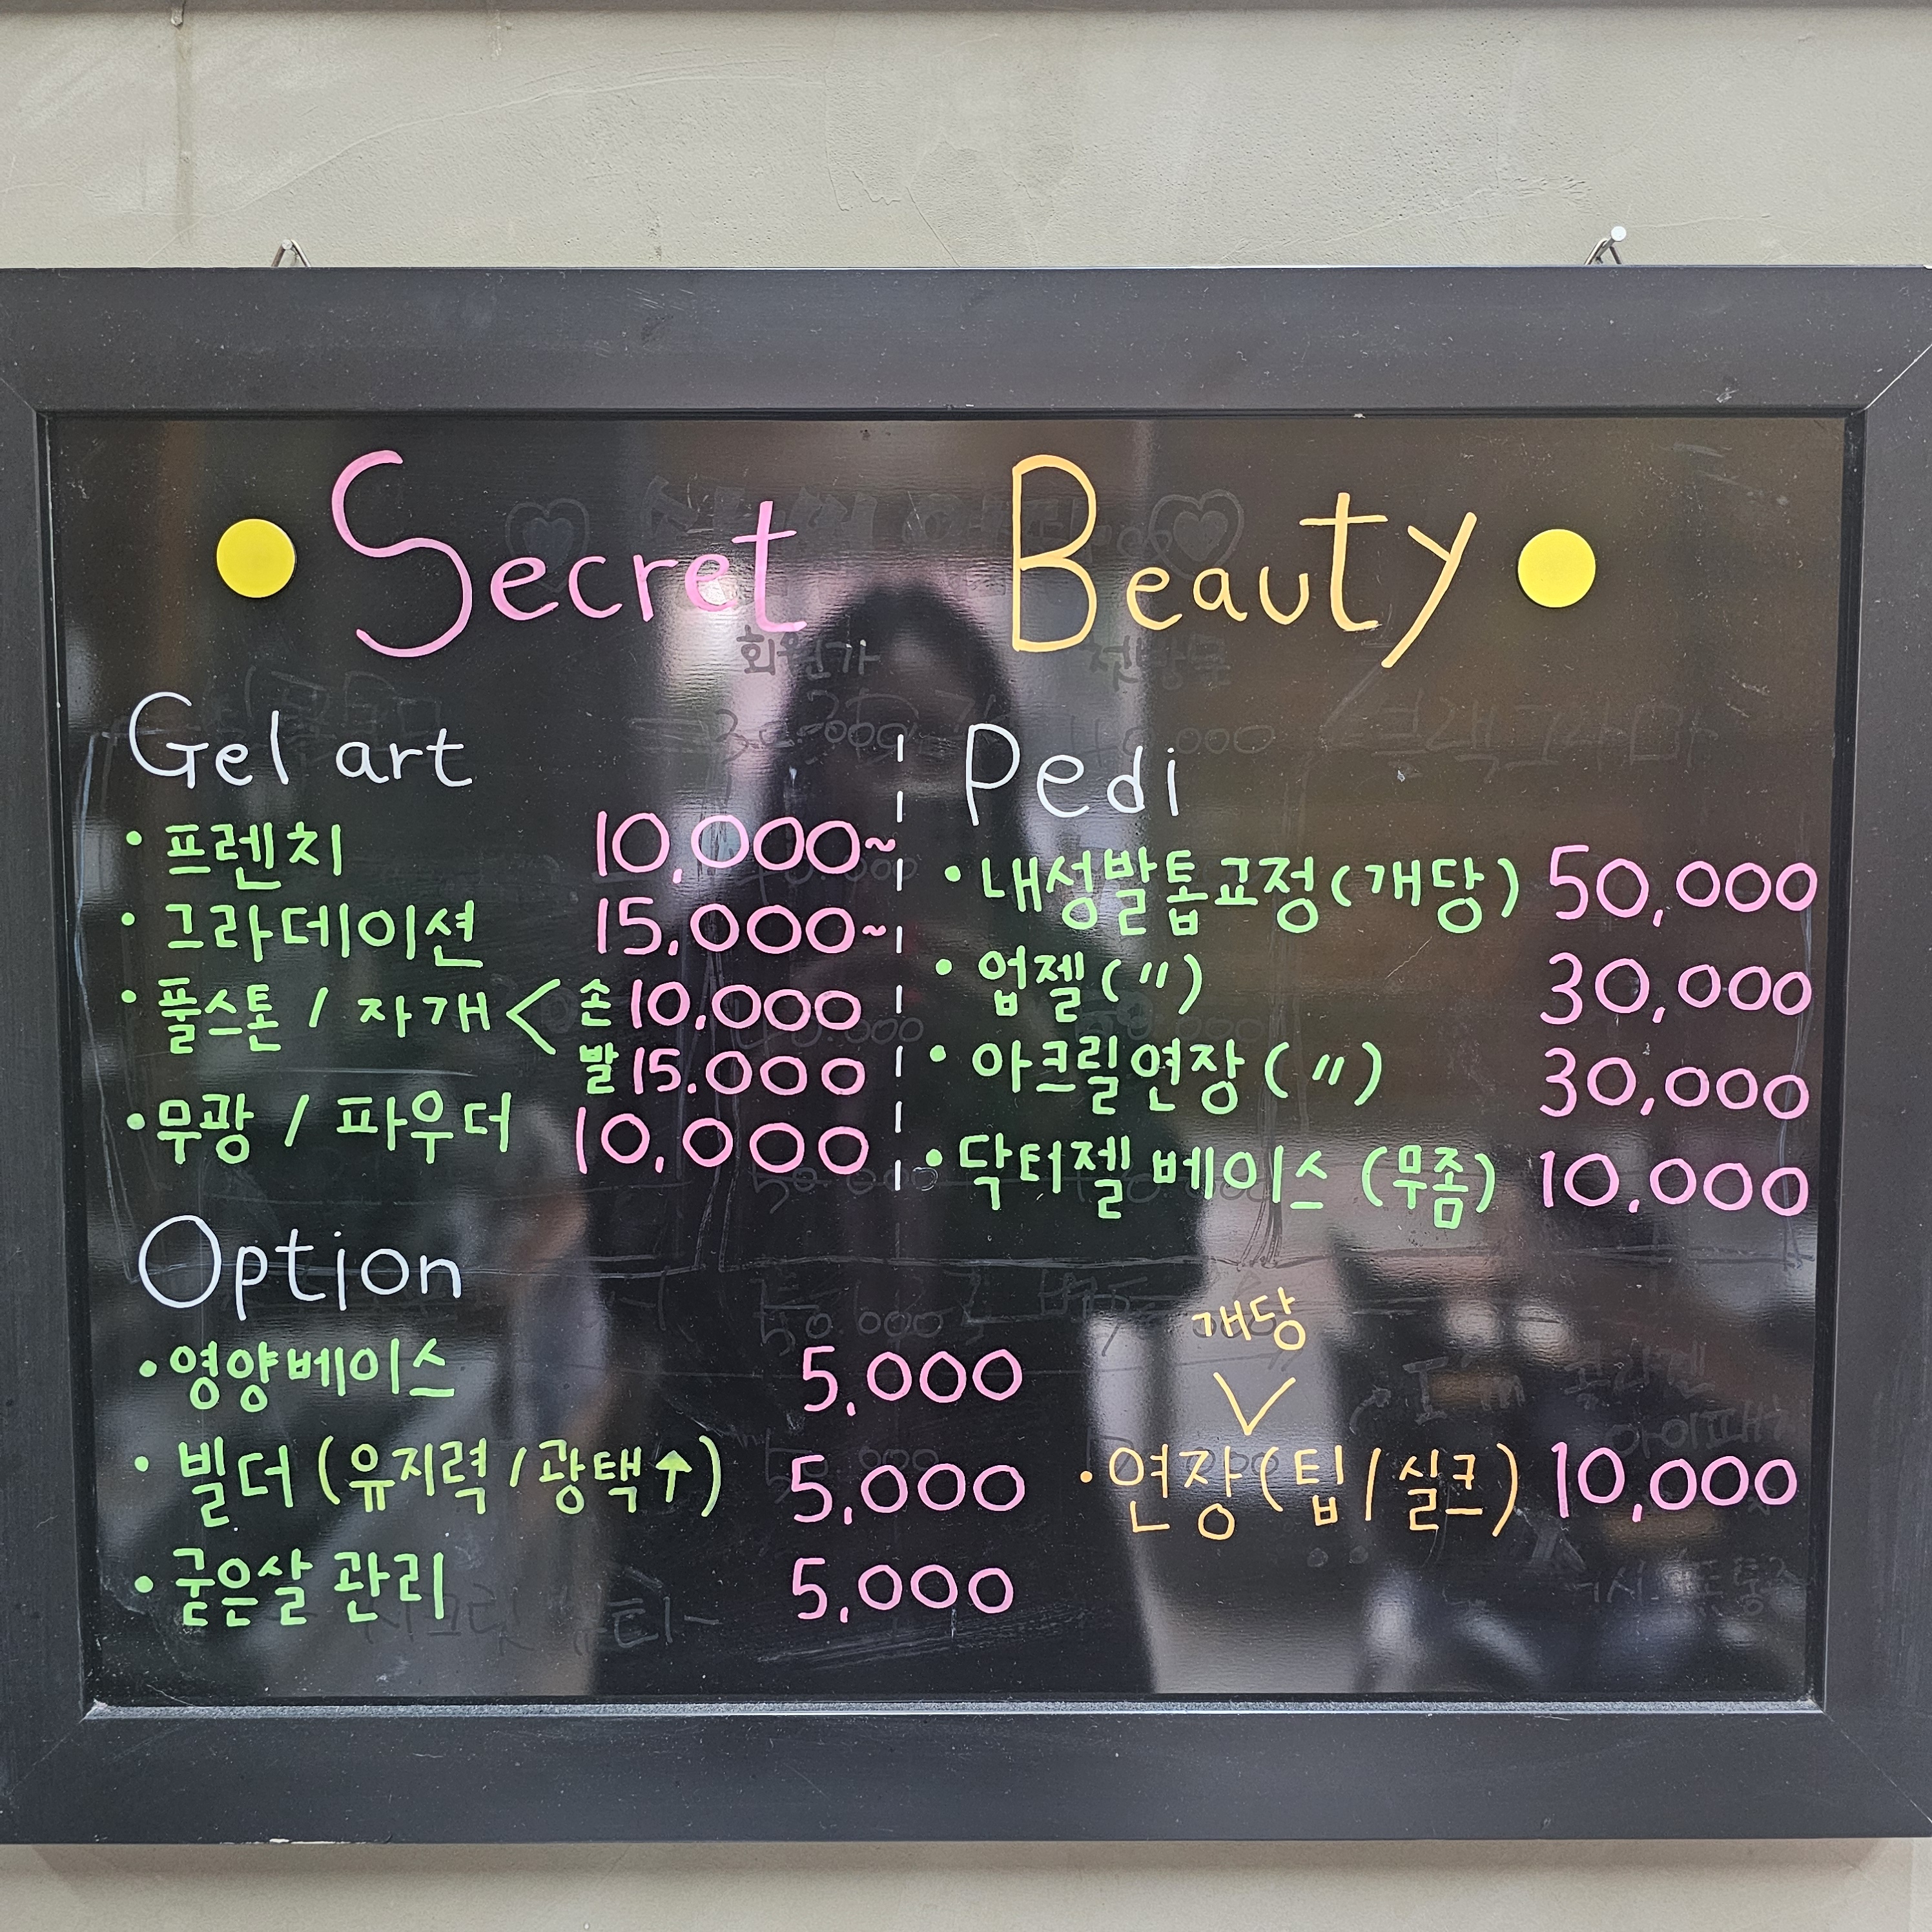 Secret Beauty
Gel art
• 프렌치 10,000~
• 그라데이션 15,000~
• 풀스톤 / 자개 < 손 10,000
발 15.000
• 무광 / 파우더 10,000
Pedi
• 내성발톱교정 (개당) 50,000
• 업젤 (〃) 30,000
• 아크릴연장 (〃) 30,000
• 닥터젤 베이스 (무좀) 10,000
Option
• 영양베이스 5,000
• 빌더 (유지력 / 광택↑) 5,000
• 굳은살 관리 5,000
개당
• 연장 (팁 / 실크) 10,000